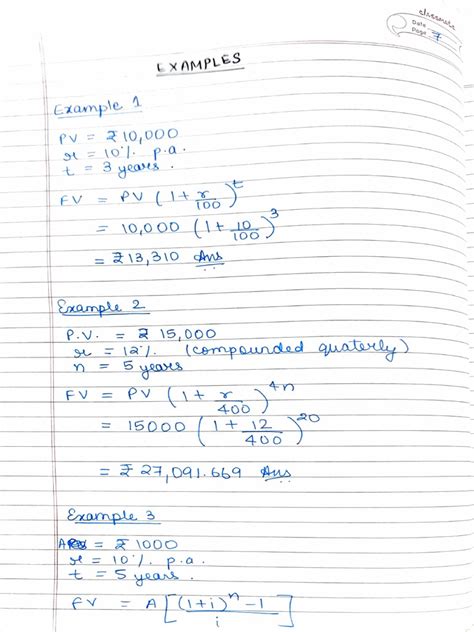 classmate
Date
Page 7
EXAMPLES
Example 1
PV = ₹10,000
r = 10% p.a.
t = 3 years.
FV = PV (1 + r/100)^t
= 10,000 (1 + 10/100)^3
= ₹13,310 Ans
Example 2
P.V. = ₹ 15,000
r = 12% (compounded quaterly)
n = 5 years
FV = PV (1 + r/400)^4n
= 15000 (1 + 12/400)^20
= ₹ 27,091.669 Ans
Example 3
= ₹ 1000
r = 10% p.a.
t = 5 years.
FV = A [(1+i)^n - 1 / i]